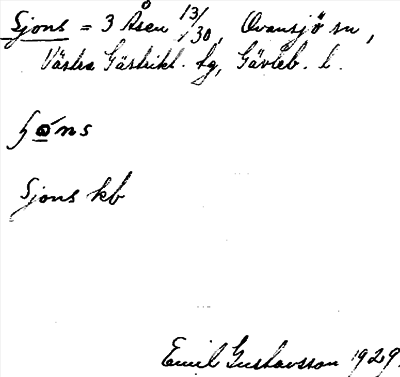 Sjons = 3 Åsen 13/30, Ovansjö sn,
Västra Gästrikl. tg, Gävleb. l.
ɧo̱ns
Sjons kb
Emil Gustavsson 1929.